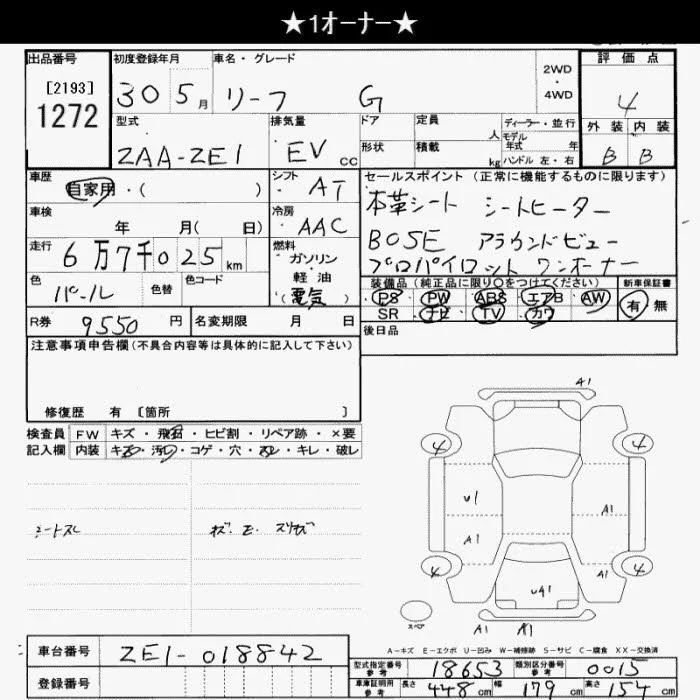 ★1オーナー★
出品番号 初度登録年月 車名・グレード 2WD ・ 4WD 評価点
[2193]
1272 30 5月 リーフ G 4
型式 排気量 ドア 定員 人 ディーラー・並行 外装 内装
ZAA-ZE1 EV cc 形状 積載 kg モデル年式 年 ハンドル 左・右 B B
車歴 自家用・( ) シフト AT セールスポイント(正常に機能するものに限ります)
車検 年 月( 日) 冷房 AAC 本革シート シートヒーター
走行 6万7千025km 燃料 ガソリン 軽油 (電気) BOSE アラウンドビュー
プロパイロット ワンオーナー
色 パール 色替 色コード 装備品(純正品に限り○をつけてください) 新車保証書
PS PW ABS エアB AW 有 無
R券 9550円 名変期限 月 日 SR ナビ TV カワ
注意事項申告欄(不具合内容等は具体的に記入して下さい) 後日品
修復歴 有 [箇所 ]
検査員 FW キズ・飛石・ヒビ割・リペア跡・×要
記入欄 内装 キズ・汚れ・コゲ・穴・スレ・キレ・破レ
シートスレ キズ.E.スリキズ
A1
4 4
U1 A1
A1
4 A1 4
UA1
スペア A1 A1
A-キズ E-エクボ U-凹み W-補修跡 S-サビ C-腐食 XX-交換済
車台番号 ZE1-018842
登録番号
型式指定番号 参考 18653 類別区分番号 参考 0015
車庫証明用 参考 長さ 448cm 幅 179cm 高さ 154cm